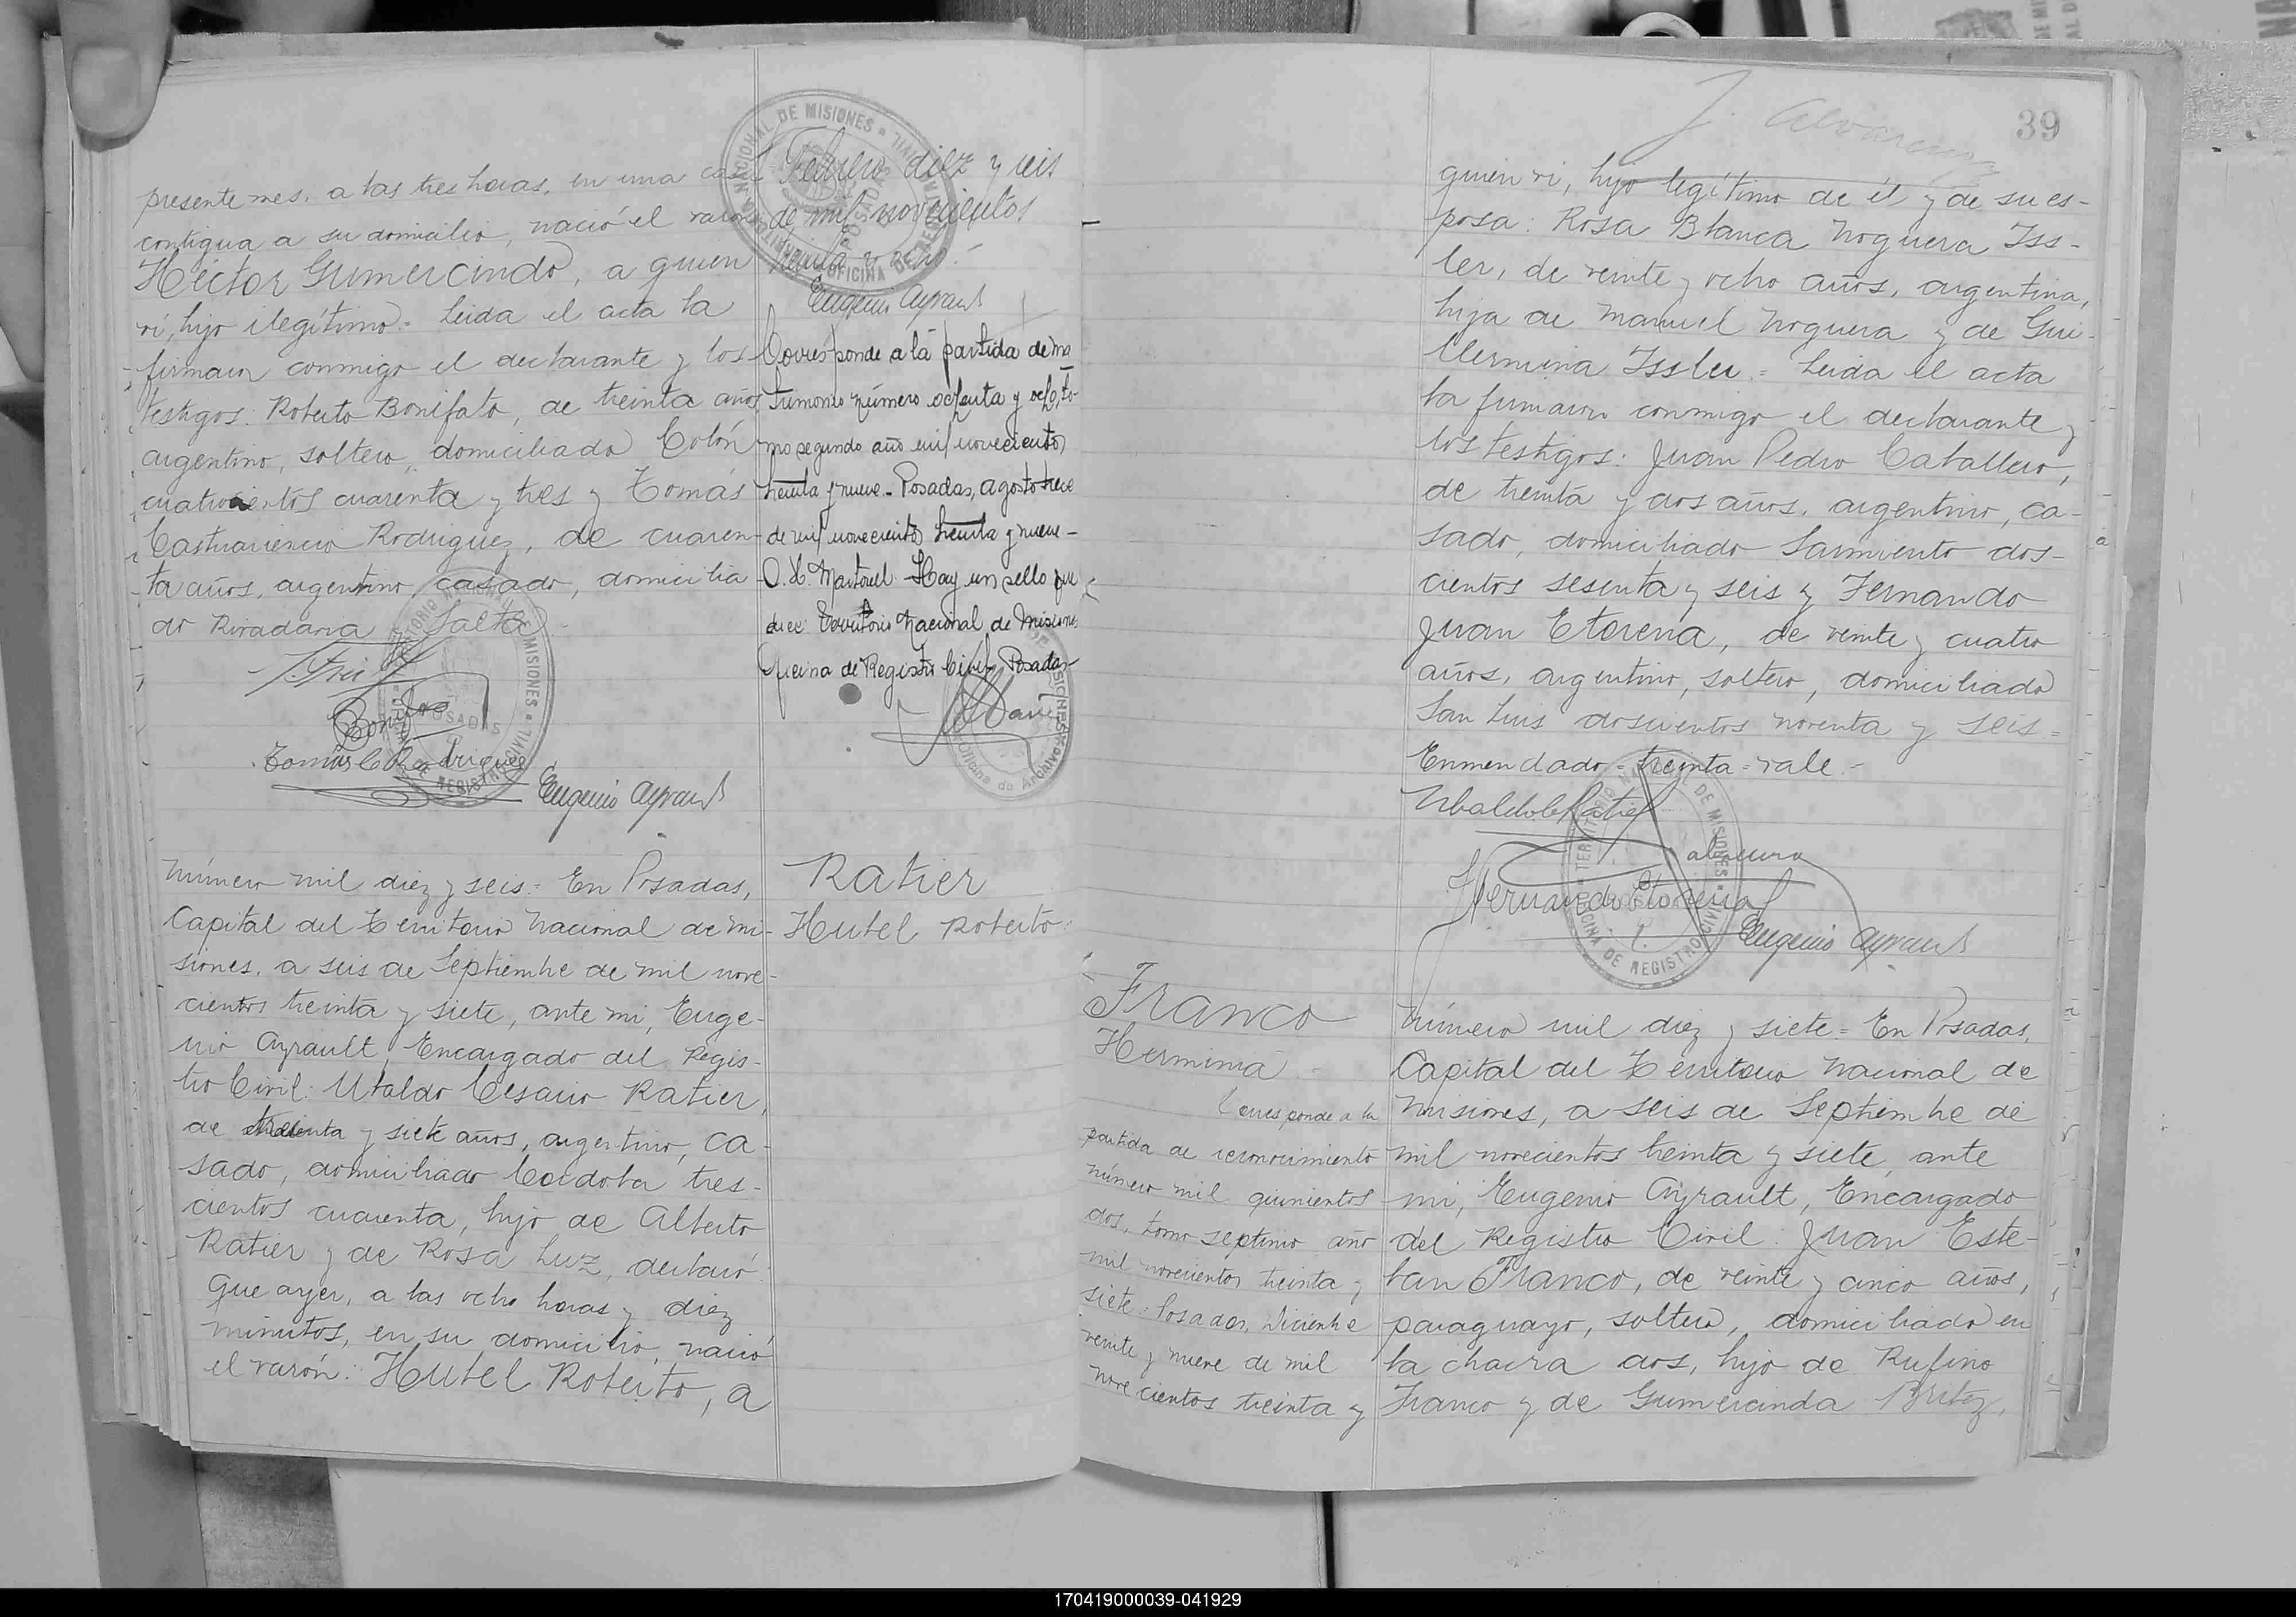 presente mes, a las tres horas, en una casa
contigua a su domicilio, nació el varón
Héctor Gumercindo, a quien
vi, hijo ilegítimo.- Leida el acta la
firmaron conmigo el declarante y los
testigos: Roberto Bonifato, de treinta años
argentino, soltero, domiciliado Colón
cuatrocientos cuarenta y tres y Tomás
Rodriguez, de cuaren-
ta años, argentino, casado, domicilia-
do Rivadavia y Salta
Tomás C Rodriguez
Eugenio Ayrault
Febrero diez y seis
de mil novecientos
treinta y ocho.-
Eugenio Ayrault
Corresponde a la partida de ma
trimonio número ochenta y ocho, to-
mo segundo año mil novecientos
treinta y nueve.- Posadas, agosto trece
de mil novecientos treinta y nueve-
O. H. Martorel.- Hay un sello que
dice: Territorio Nacional de Misiones
Oficina de Registro Civil, Posadas-
Número mil diez y seis.= En Posadas,
Capital del Territorio Nacional de Mi-
siones, a seis de Septiembre de mil nove-
cientos treinta y siete, ante mi, Euge-
nio Ayrault, Encargado del Regis-
tro Civil: Ubaldo Cesario Ratier,
de treinta y siete años, argentino, ca-
sado, domiciliado Córdoba tres-
cientos cuarenta, hijo de Alberto
Ratier y de Rosa Luz, declaró:
Que ayer, a las ocho horas y diez
minutos, en su domicilio, nació
el varón: Hutel Roberto, a
Ratier
Hutel Roberto.
J. Alvarenga
39
quien vi, hijo legítimo de él y de su es-
posa: Rosa Blanca Noguera Iss-
ler, de veinte y ocho años, argentina,
hija de Manuel Noguera y de Gui-
llermina Issler.= Leida el acta
la firmaron conmigo el declarante y
los testigos: Juan Pedro Caballero,
de treinta y dos años, argentino, ca-
sado, domiciliado Sarmiento dos-
cientos sesenta y seis y Fernando
Juan Etorena, de veinte y cuatro
años, argentino, soltero, domiciliado
San Luis doscientos noventa y seis=
Enmendado=treinta=vale.-
Ubaldo C Ratier
Fernando Etorena
Eugenio Ayrault
Franco
Herminia.-
Corresponde a la
partida de reconocimiento
número mil quinientos
dos, tomo septimo año
mil novecientos treinta y
siete.= Posadas, Diciembre
veinte y nueve de mil
novecientos treinta y
Número mil diez y siete= En Posadas,
Capital del Territorio Nacional de
Misiones, a seis de Septiembre de
mil novecientos treinta y siete, ante
mi, Eugenio Ayrault, Encargado
del Registro Civil: Juan Este-
ban Franco, de veinte y cinco años,
paraguayo, soltero, domiciliado en
la chacra dos, hijo de Rufino
Franco y de Gumercinda Britez,
170419000039-041929